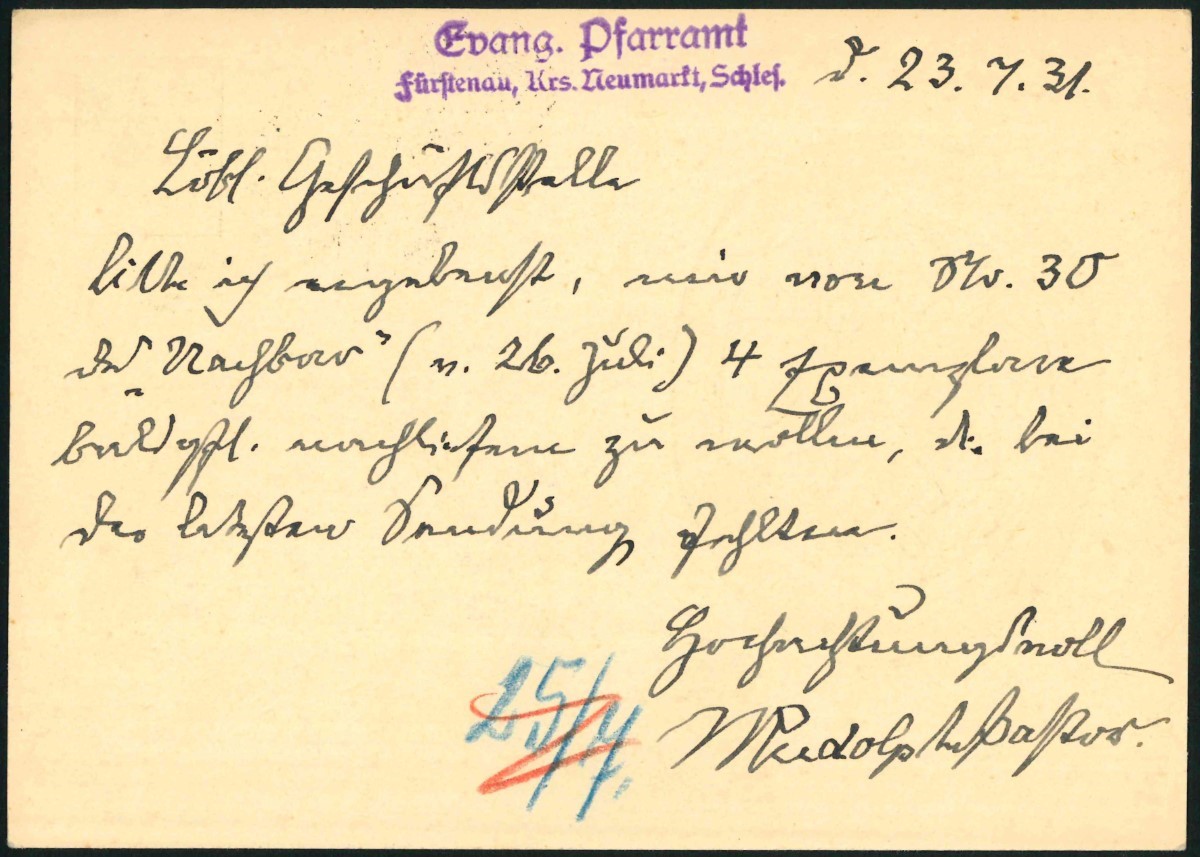 Evang. Pfarramt
Fürstenau, Krs. Neumarkt, Schles.
d. 23. 7. 31.
Löbl. Geschäftsstelle
bitte ich ergebenst, mir von Nr. 30
des „Nachbar" (v. 26. Juli) 4 Exemplare
baldgfl. nachliefern zu wollen, die bei
der letzten Sendung fehlten.
Hochachtungsvoll
Rudolph Pastor.
25/7.